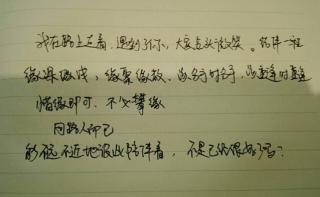 我在路上走着，遇到了你，大家点头微笑。结伴一程
缘深缘浅，缘聚缘散，该分时分，该重逢时重逢
惜缘即可，不必攀缘
同路人而已
能不远不近地彼此陪伴着，不是已经很好了吗？